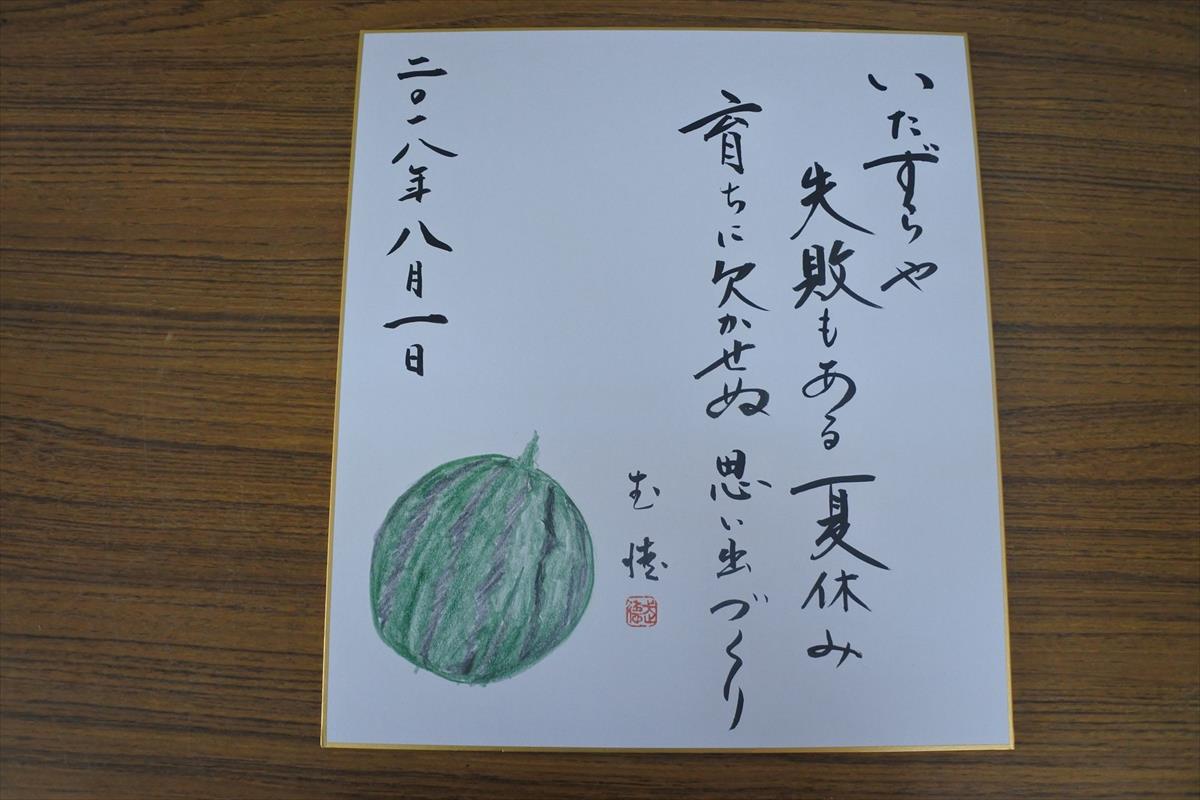 いたずらや
失敗もある夏休み
育ちに欠かせぬ思い出づくり
二〇一八年八月一日